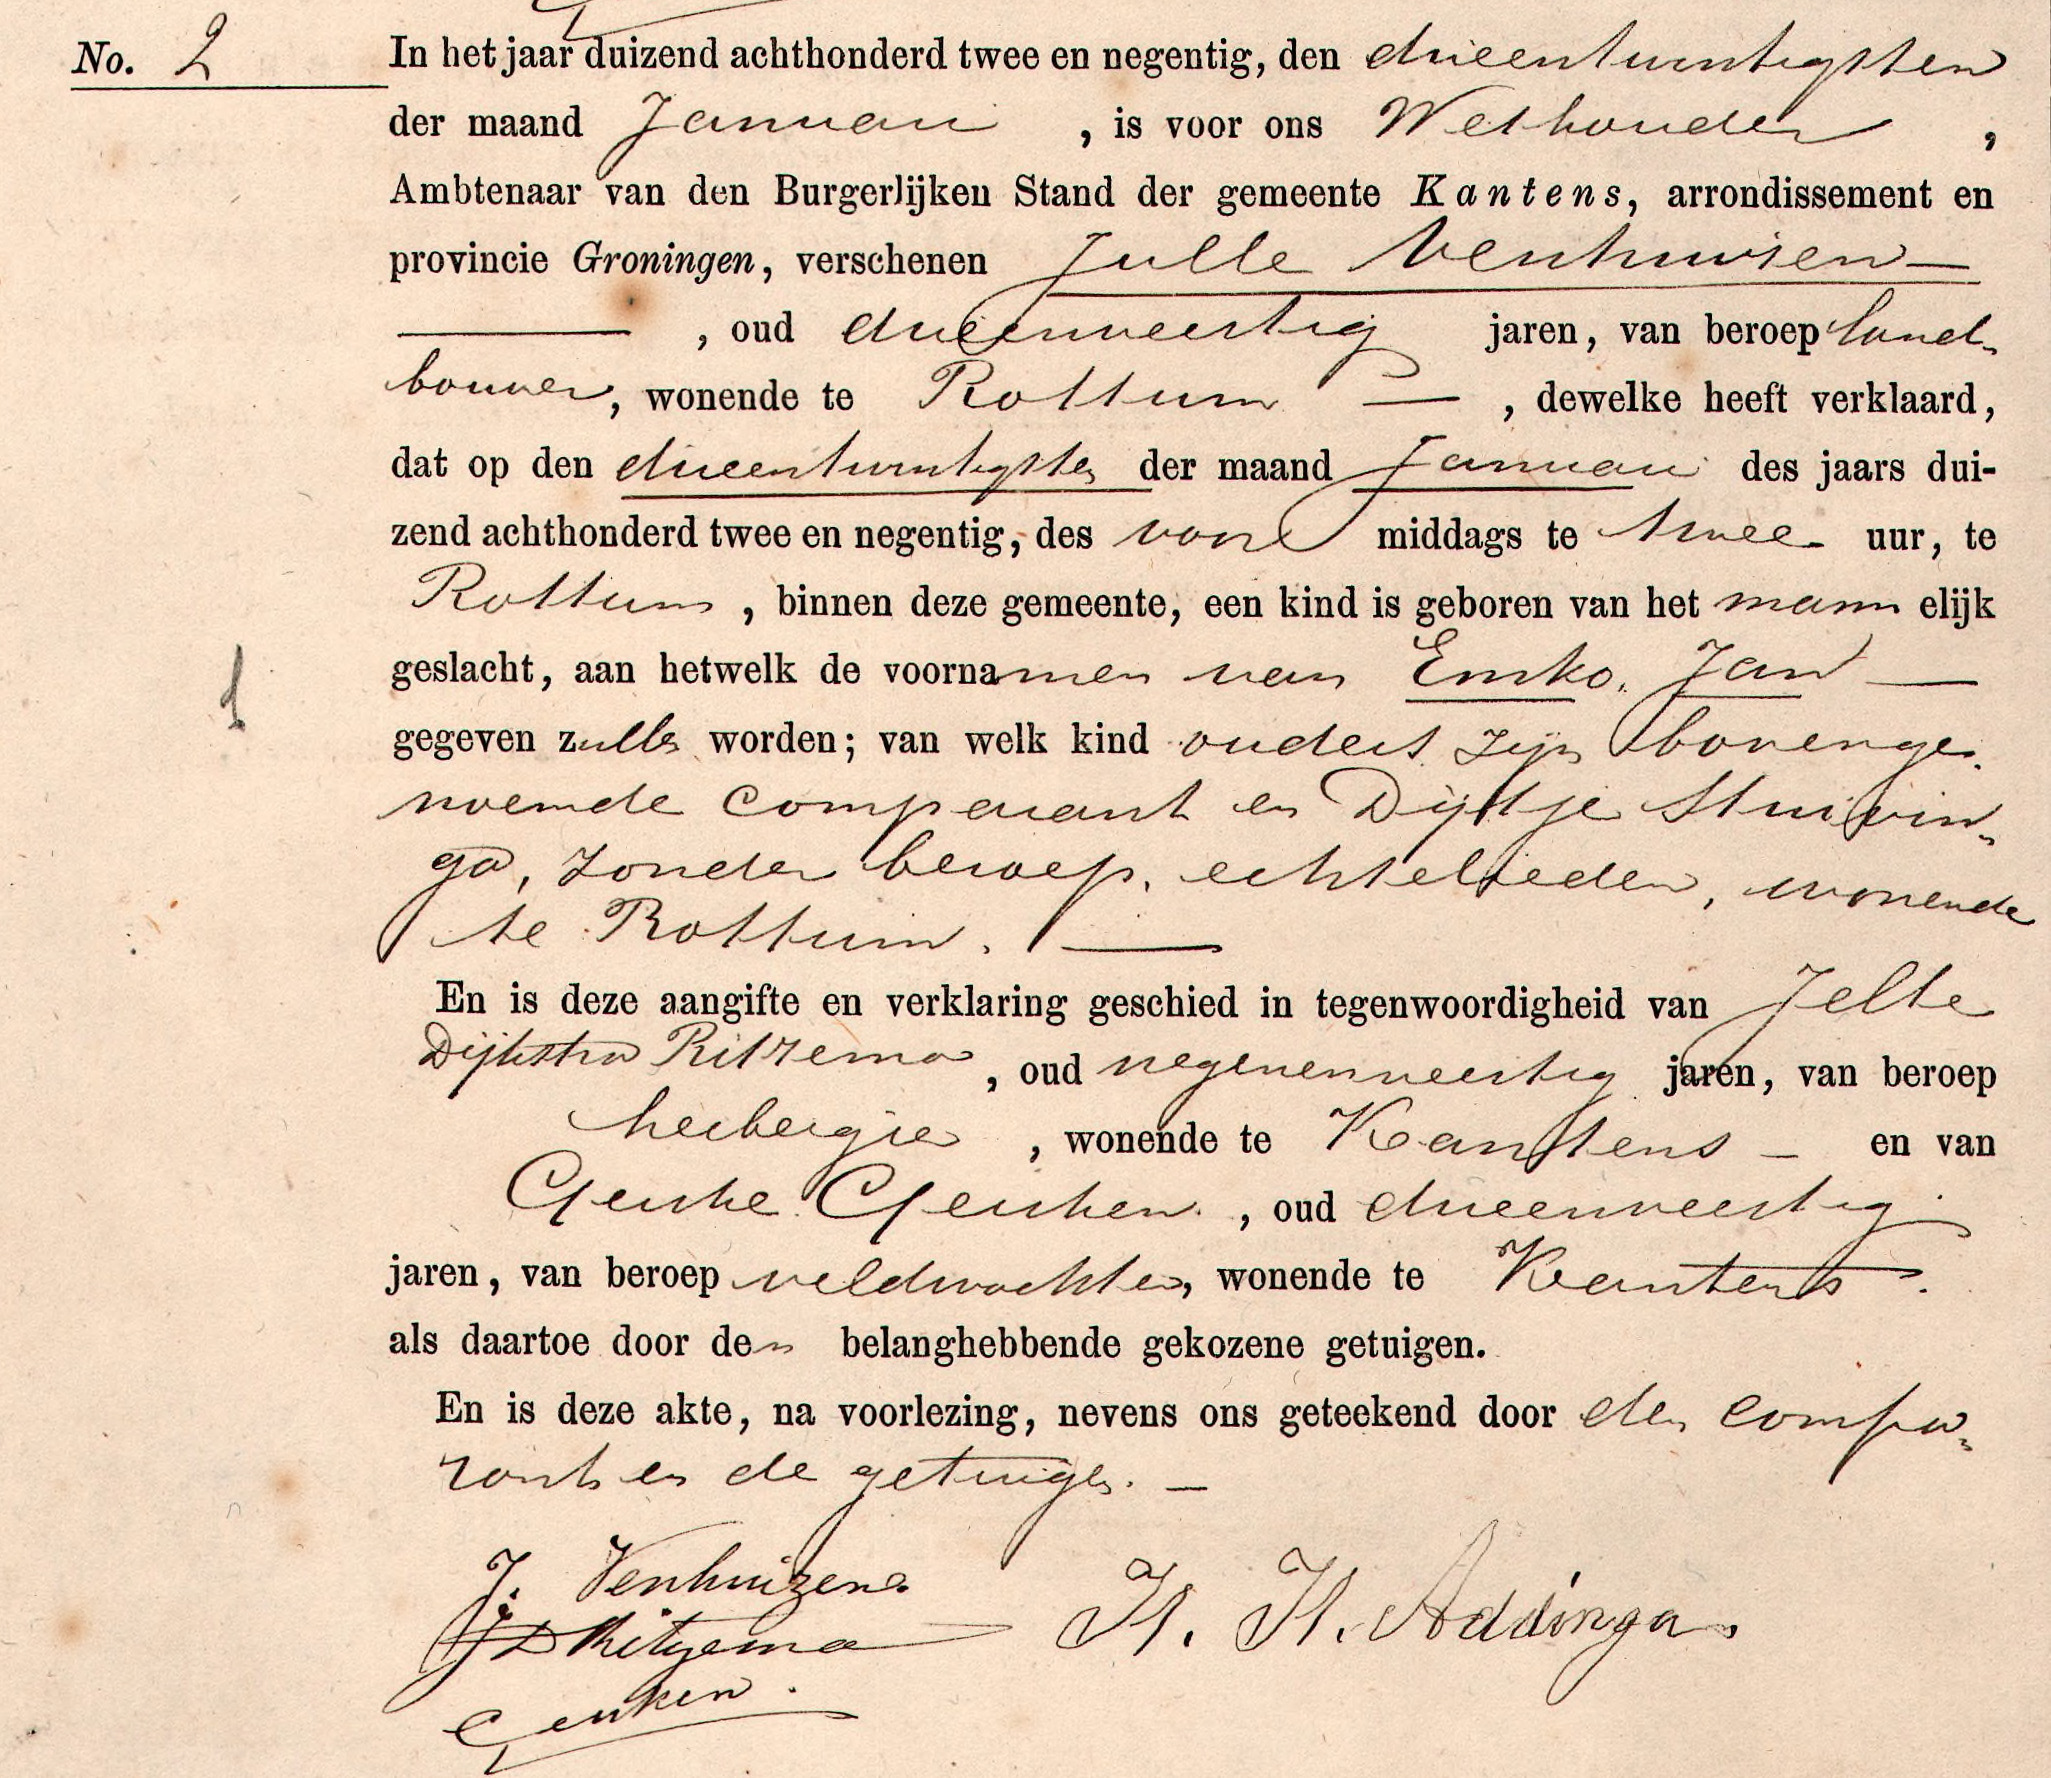 No. 2 In het jaar duizend achthonderd twee en negentig, den drieentwintigsten
der maand Januari , is voor ons Wethouder ,
Ambtenaar van den Burgerlijken Stand der gemeente Kantens, arrondissement en
provincie Groningen, verschenen Julle Venhuisen
, oud drieenveertig jaren, van beroep land-
bouwer, wonende te Rottum — , dewelke heeft verklaard,
dat op den drieentwintigsten der maand Januari des jaars dui-
zend achthonderd twee en negentig, des voor middags te twee uur, te
Rottum , binnen deze gemeente, een kind is geboren van het mann elijk
geslacht, aan hetwelk de voornamen van Emko Jan —
gegeven zullen worden; van welk kind ouders zijn bovenge-
noemde comparant en Dijktje Stuivin-
ga, zonder beroep, echtelieden, wonende
te Rottum. —
1
En is deze aangifte en verklaring geschied in tegenwoordigheid van Jelte
Dijkstra Ritzema , oud negenenveertig jaren, van beroep
herbergier , wonende te Kantens — en van
Geuke Geuken , oud drieenveertig
jaren, van beroep veldwachter, wonende te Kantens .
als daartoe door den belanghebbende gekozene getuigen.
En is deze akte, na voorlezing, nevens ons geteekend door den compa-
rant en de getuigen. —
J. Venhuizen
J D Ritzema H. H. Addinga.
Geuken.